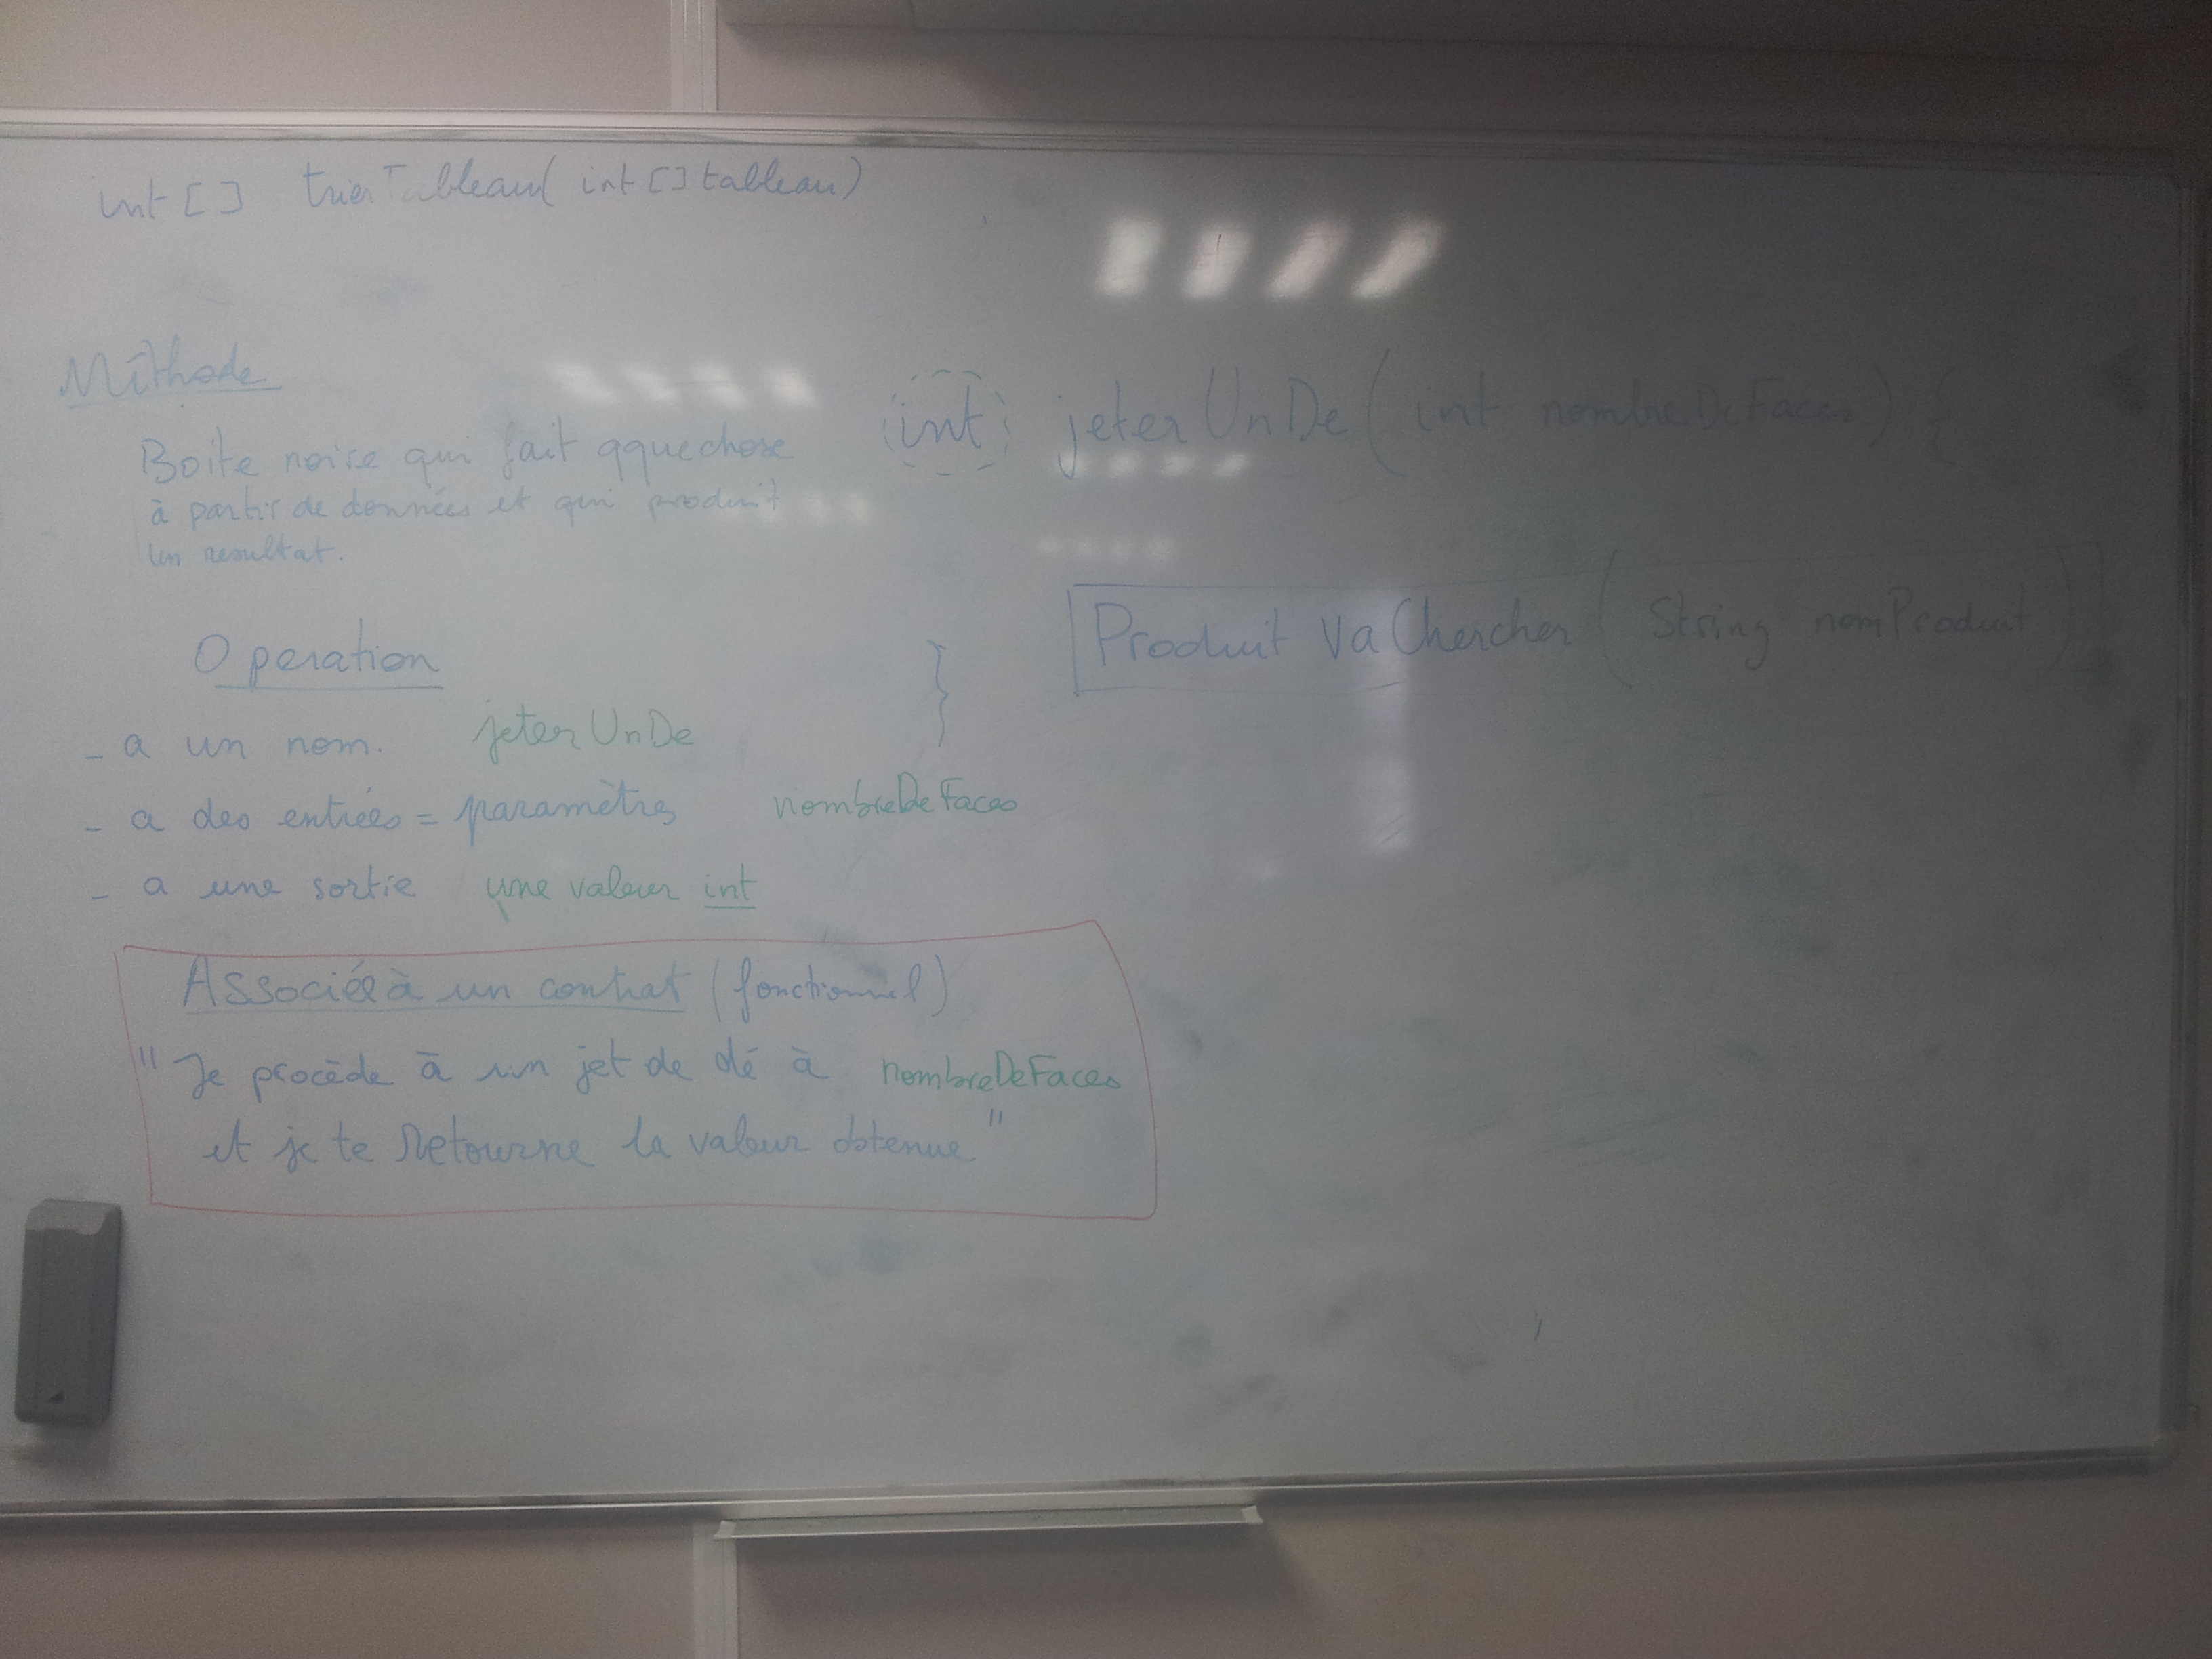 int [] trierTableau( int [] tableau)
Méthode
Boite noire qui fait qquechose
à partir de données et qui produit
un resultat.
int jeterUnDe( int nombreDeFaces) {
}
Produit vaChercher( String nomProduit )
Operation
- a un nom. jeterUnDe
- a des entrées = paramètres nombreDeFaces
- a une sortie une valeur int
Associée à un contrat (fonctionnel)
" Je procède à un jet de dé à nombreDeFaces
et je te Retourne la valeur obtenue "